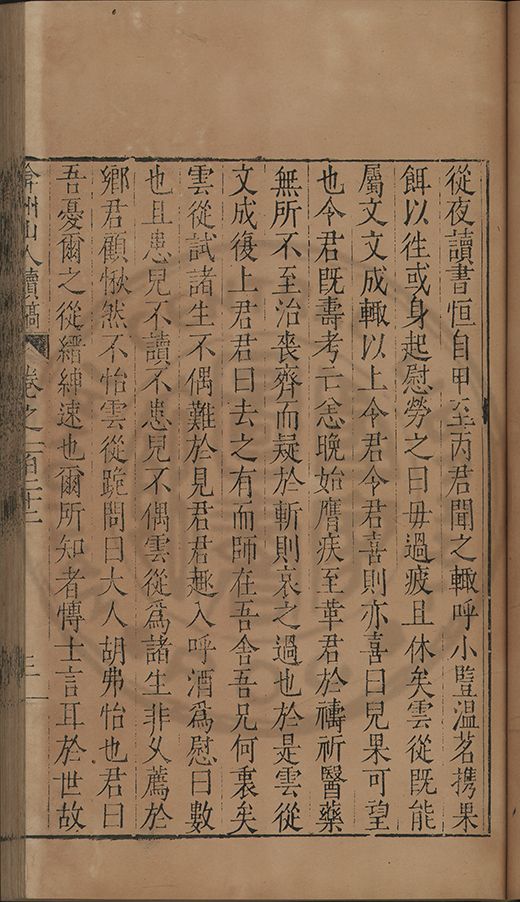 從夜讀書恒自甲至丙君聞之輙呼小豎温茗携果
餌以徃或身起慰勞之曰毋過疲且休矣雲從既能
屬文文成輙以上令君令君喜則亦喜曰兒果可望
也令君既壽考亡恙晚始膺疾至革君於禱祈醫藥
無所不至治喪齊而疑於斬則哀之過也於是雲從
文成復上君君曰去之有而師在吾舍吾兄何裏矣
雲從試諸生不偶難於見君君趣入呼酒爲慰曰數
也且患兒不讀不患兒不偶雲從爲諸生非乆薦於
鄉君顧愀然不怡雲從跪問曰大人胡弗怡也君曰
吾憂爾之從縉紳速也爾所知者慱士言耳於世故
弇州山人續稿 卷之一百二十二 三